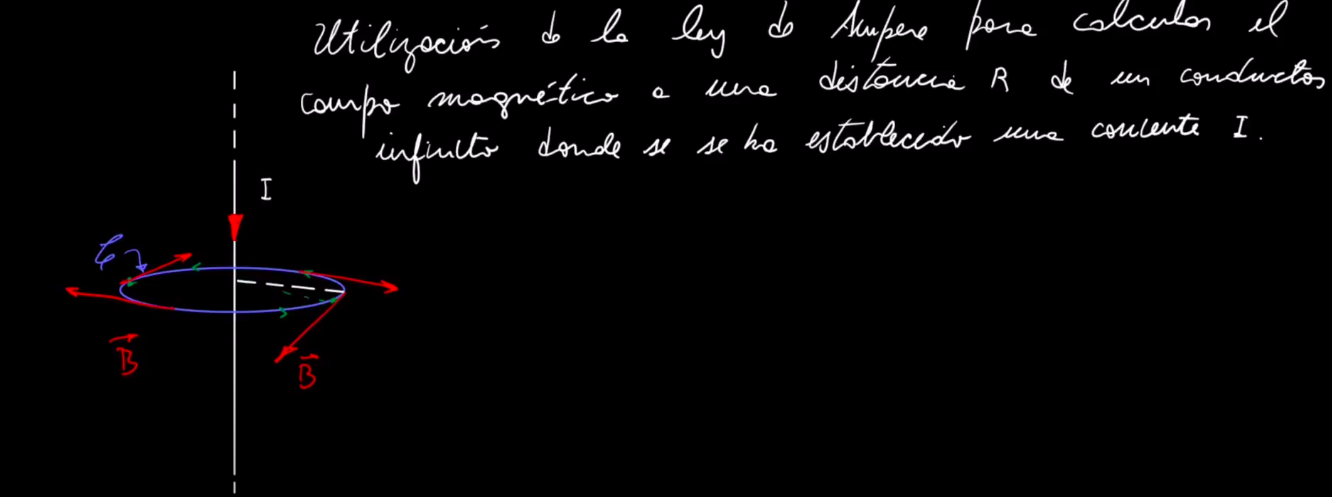 Utilización de la ley de Ampere para calcular el
campo magnético a una distancia R de un conductor
infinito donde se se ha establecido una corriente I.
I
C
B
B